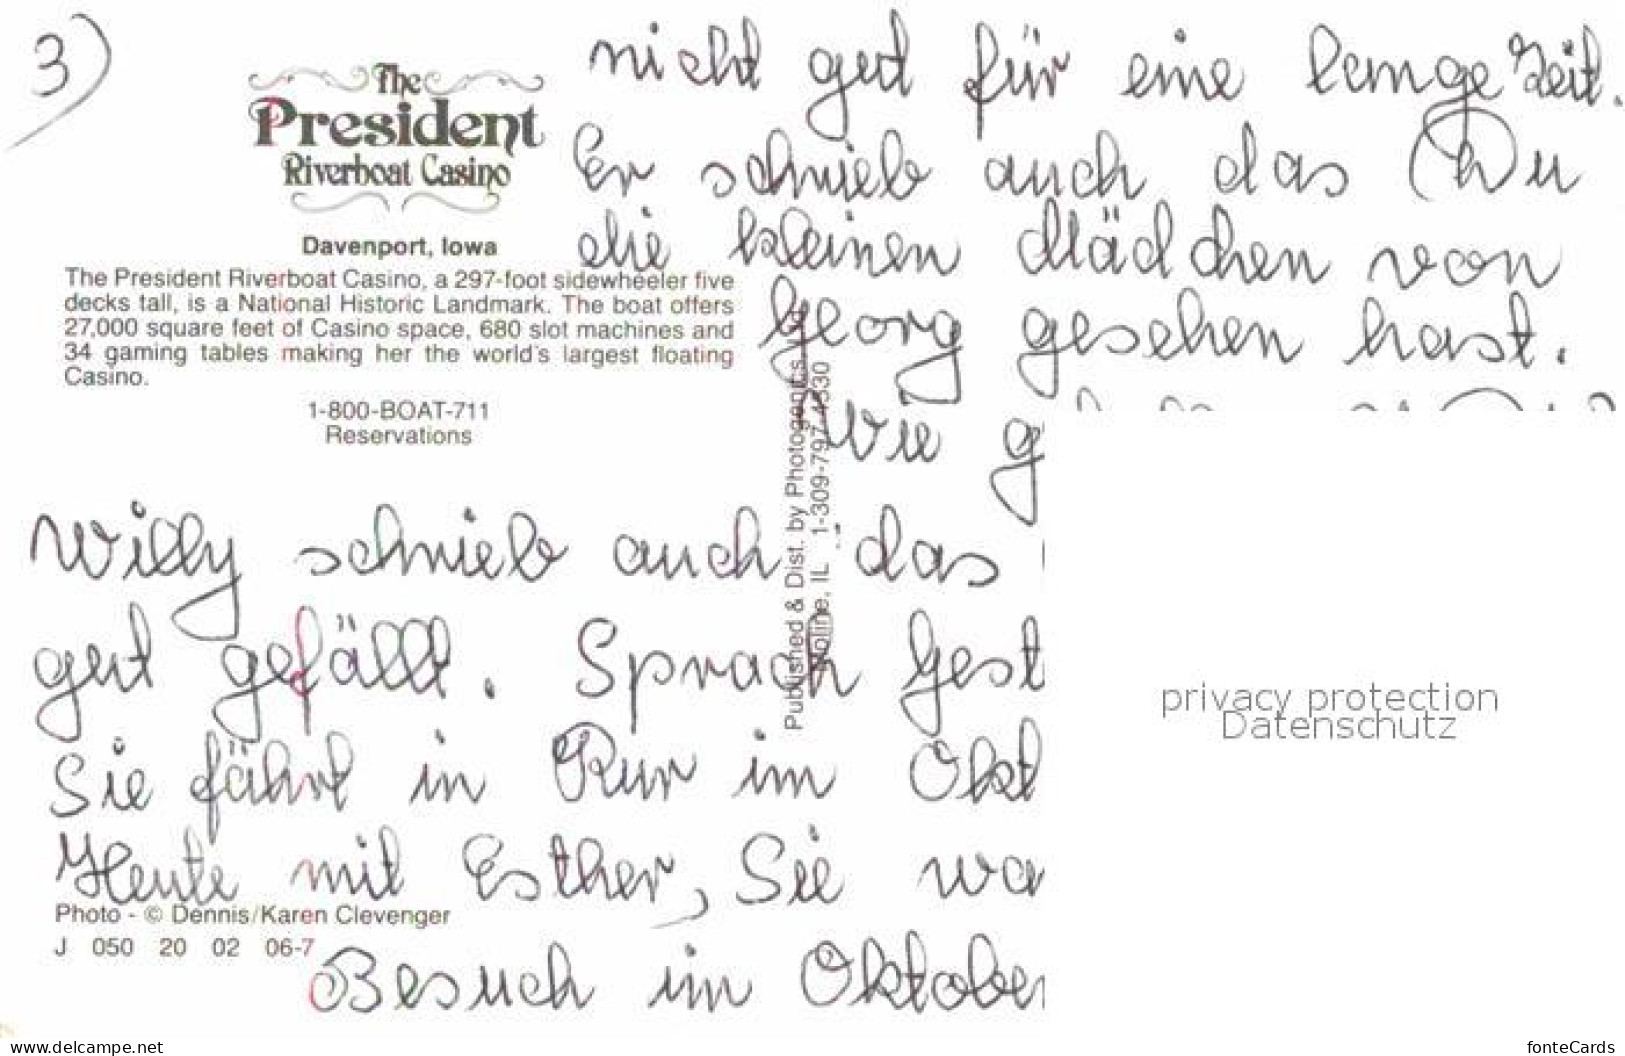 3)
nicht gut für eine lange Zeit.
Er schrieb auch das Du
die kleinen Mädchen von
Georg gesehen hast.
Wie g
Willy schrieb auch das
gut gefällt. Sprach Gest
Sie fährt in Kur im Okt
Heute mit Esther, Sie wa
Besuch im Oktober
The
President
Riverboat Casino
Davenport, Iowa
The President Riverboat Casino, a 297-foot sidewheeler five
decks tall, is a National Historic Landmark. The boat offers
27,000 square feet of Casino space, 680 slot machines and
34 gaming tables making her the world's largest floating
Casino.
1-800-BOAT-711
Reservations
Published & Dist. by Photogenics
Moline, IL 1-309-797-4330
Photo - © Dennis/Karen Clevenger
J 050 20 02 06-7
privacy protection
Datenschutz
www.delcampe.net
fonteCards